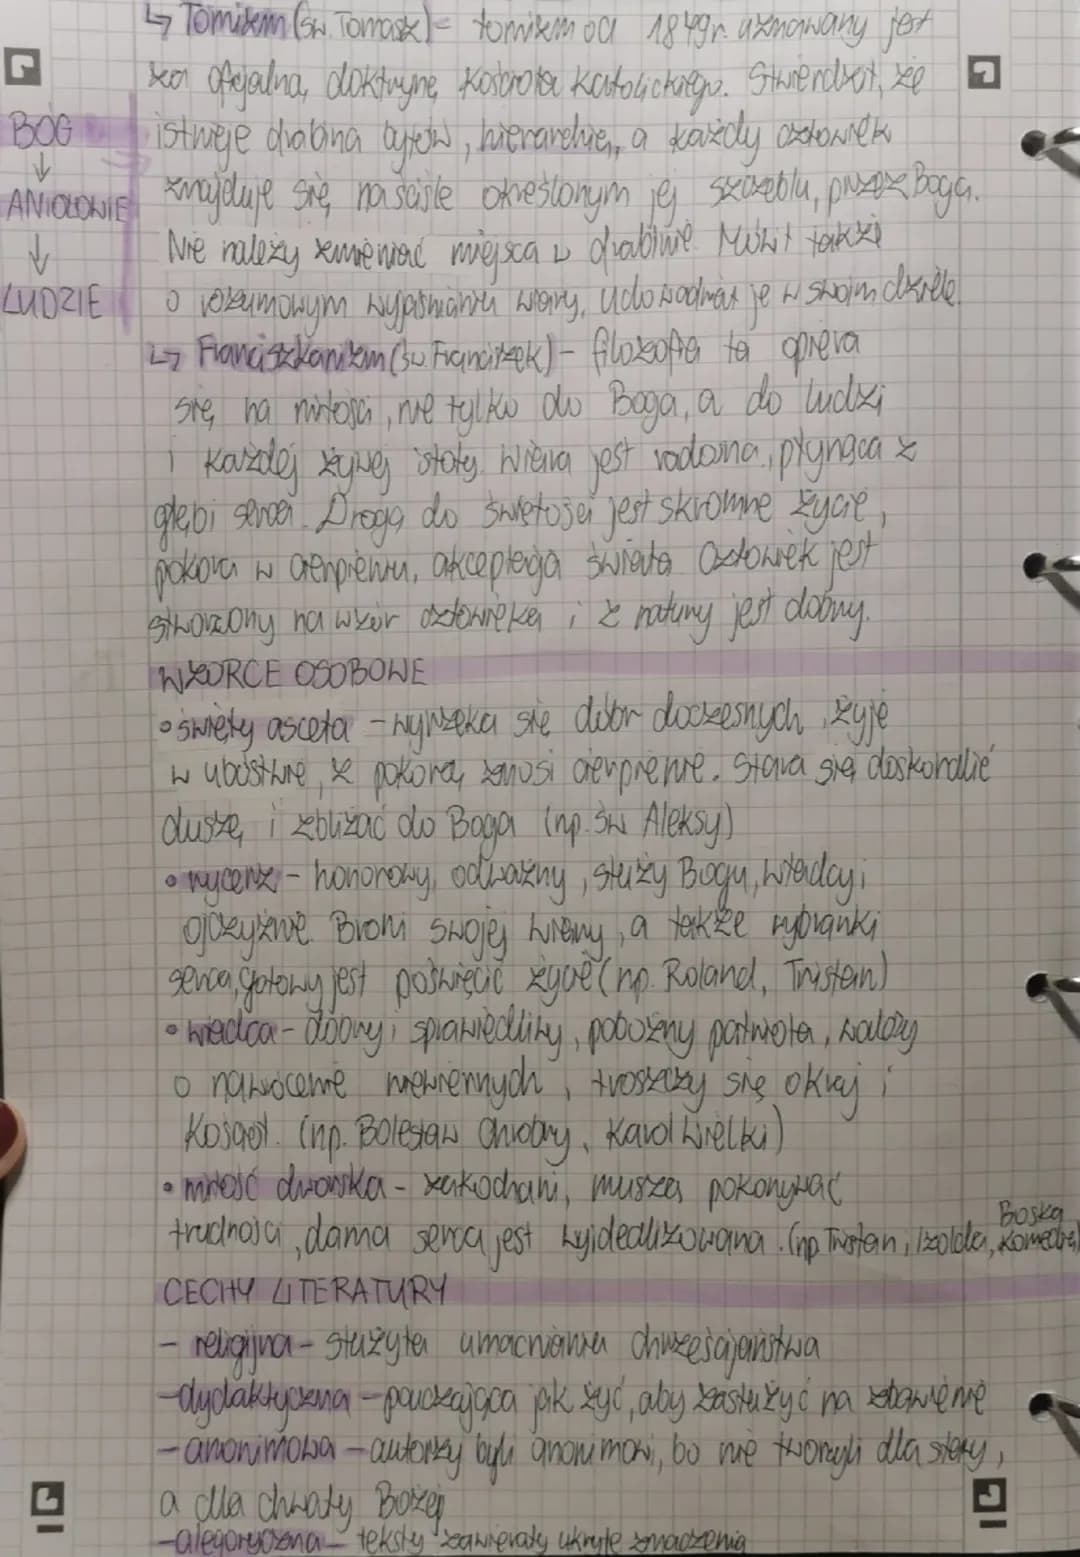 ↳ Tomizm (św. Tomasz) - tomizm od 1879r. uznawany jest
za oficjalną doktrynę Kościoła Katolickiego. Stwierdził, że
istnieje drabina bytów, hierarchia, a każdy człowiek
znajduje się na ściśle określonym jej szczeblu, przez Boga.
Nie należy zmieniać miejsca w drabinie. Mówił także
o rozumowym wyjaśnianiu wiary, udowadniał je w swoim dziele.
BÓG
↓
ANIOŁOWIE
↓
LUDZIE
↳ Franciszkanizm (św. Franciszek) - filozofia ta opiera
się na miłości, nie tylko do Boga, a do ludzi
i każdej żywej istoty. Wiara jest radosna, płynąca z
głębi serca. Drogą do świętości jest skromne życie,
pokora w cierpieniu, akceptacja świata. Człowiek jest
stworzony na wzór człowieka i z natury jest dobry.
WZORCE OSOBOWE
• święty asceta - wyrzeka się dóbr doczesnych, żyje
w ubóstwie, z pokorą znosi cierpienie. Stara się doskonalić
duszę i zbliżać do Boga (np. św Aleksy)
• rycerz - honorowy, odważny, służy Bogu, władcy i
ojczyźnie. Broni swojej wiary, a także wybranki
serca, gotowy jest poświęcić życie (np. Roland, Tristan)
• władca - dobry i sprawiedliwy, pobożny patriota, walczy
o nawrócenie niewiernych, troszczy się o kraj i
Kościół. (np. Bolesław Chrobry, Karol Wielki)
• miłość dworska - zakochani, muszą pokonywać
trudności, dama serca jest wyidealizowana. (np. Tristan i Izolda, Boska Komedia)
CECHY LITERATURY
- religijna - służyła umacnianiu chrześcijaństwa
- dydaktyczna - pouczająca jak żyć, aby zasłużyć na zbawienie
- anonimowa - autorzy byli anonimowi, bo nie tworzyli dla sławy,
a dla chwały Bożej
- alegoryczna - teksty zawierały ukryte znaczenia